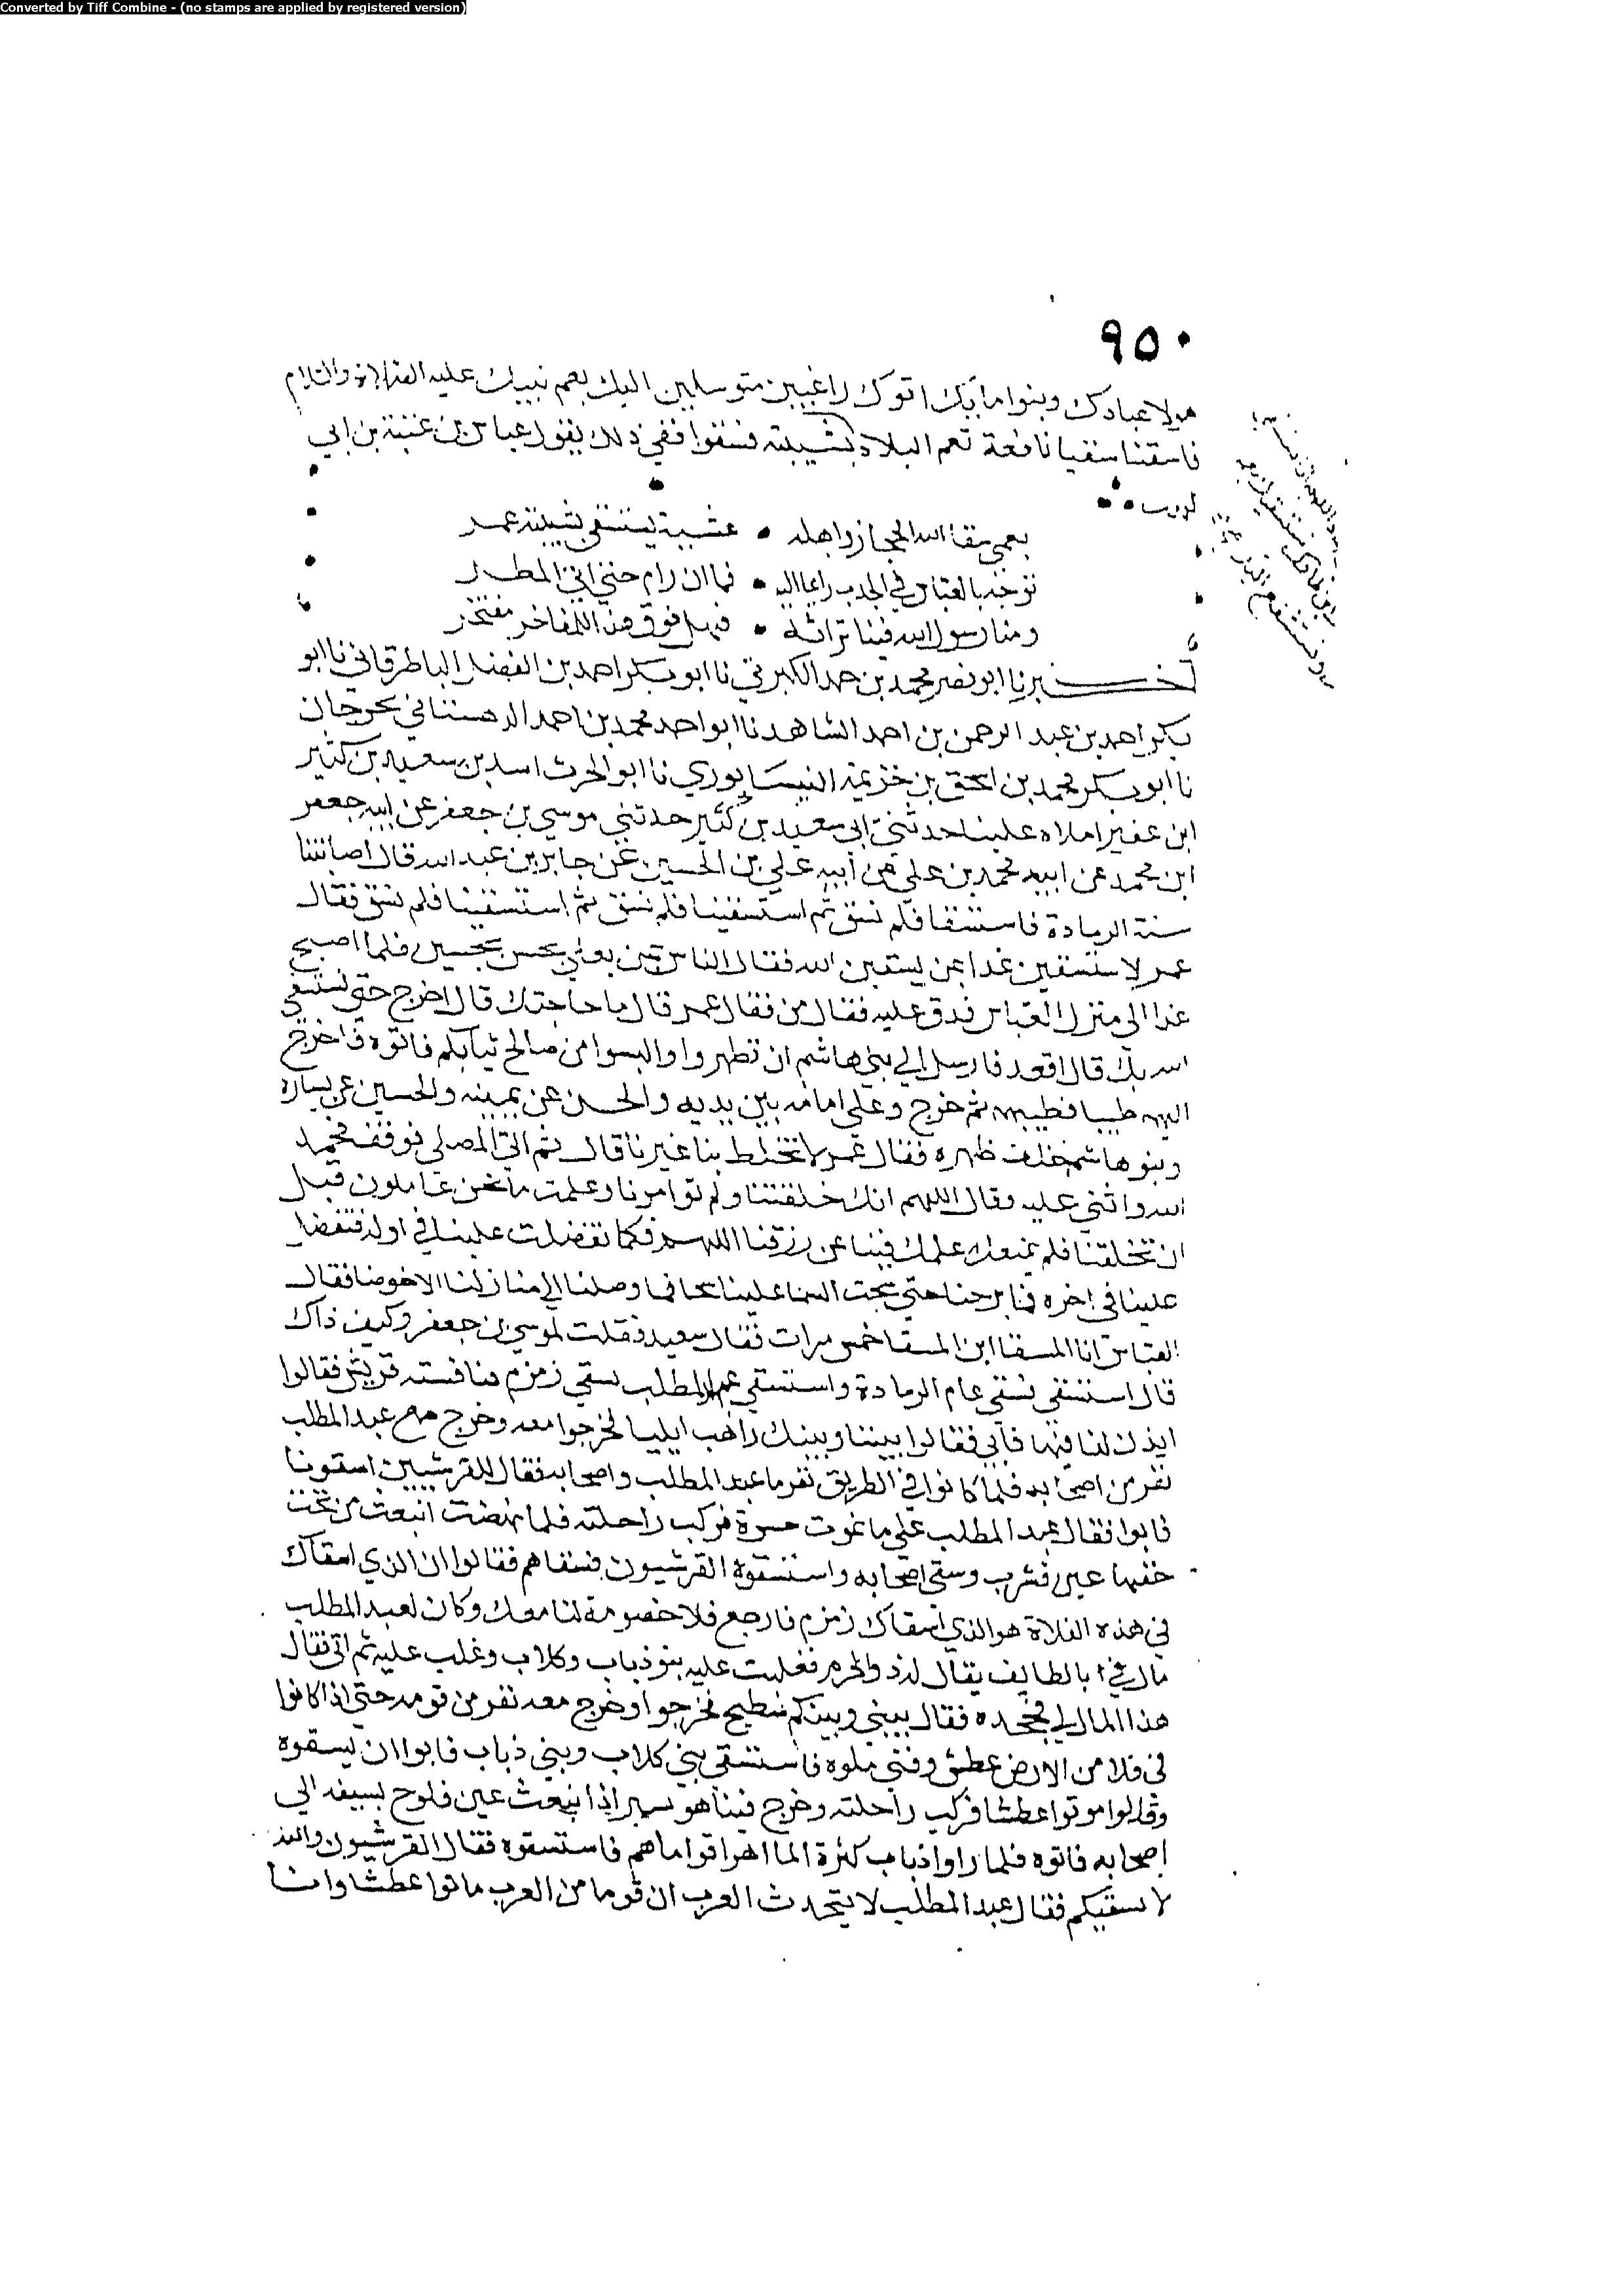 Converted by Tiff Combine - (no stamps are applied by registered version)
٩٥٠
هولا عبادك وبنوا مايك اتوك راغبين متوسلين اليك بعم نبيك عليه الصلاة والسلام
فاسقنا سقيا نافعة تعم البلاد بشيبته فسقوا ففي ذلك يقول عباس بن عتبة بن ابي
لهب
بعمي سقا الله الحجاز واهله • عشية يستسقي بشيبته عمر
توجه بالعباس في الجدب راغبا اليه • فما ان رام حتى اتي المطر
ومنا رسول الله فينا تراثه • فهل فوق هذا للمفاخر مفتخر
اخبرنا ابو نصر محمد بن حمد الكبرتي نا ابو بكر احمد بن الفضل الباطرقاني نا ابو
بكر احمد بن عبد الرحمن بن احمد الشاهد نا ابو احمد محمد بن احمد الدهستاني بجرجان
نا ابو بكر محمد بن اسحق بن خزيمة النيسابوري نا ابو الحرث اسد بن سعيد بن كثير
ابن عفير املاه علينا حدثني ابي سعيد بن كثير حدثني موسي بن جعفر عن ابيه جعفر
ابن محمد عن ابيه محمد بن علي عن ابيه علي بن الحسين عن جابر بن عبد الله قال اصابتنا
سنة الرمادة فاستسقا فلم نسق ثم استسقينا فلم نسق ثم استسقينا فلم نسق فقال
عمر لاستسقين غدا بمن يسقين الله فقال الناس بمن بعلي بحسن بحسين فلما اصبح
غدا الي منزل العباس فدق عليه فقال من فقال عمر قال ما حاجتك قال اخرج حتى نستسقي
الله بك قال اقعد فارسل الي بني هاشم ان تطهروا والبسوا من صالح ثيابكم فاتوه فاخرج
اليهم طيبا فطيبهم ثم خرج وعلي امامه بين يديه والحسن عن يمينه والحسين عن يساره
وبنو هاشم خلف ظهره فقال عمر لا تخلط بنا غيرنا قال ثم اتي المصلي فوقف فحمد
الله واثني عليه وقال اللهم انك خلقتنا ولم توامرنا وعلمت ما نحن عاملون قبل
ان تخلقنا فلم يمنعك علمك فينا عن رزقنا اللهم فكما تفضلت علينا في اوله فتفضل
علينا في اخره فما برحنا حتي سحت السما علينا سحا فما وصلنا الي منازلنا الا خوضا فقال
العباس انا المسقا ابن المسقا خمس مرات فقال سعيد فقلت لموسي بن جعفر وكيف ذاك
قال استسقي فسقي عام الرمادة واستسقي عبد المطلب فسقي زمزم فنافسته قريش فقالوا
ايذن لنا فيها فابي فقالوا بيننا وبينك راهب ايليا فخرجوا معه وخرج مع عبد المطلب
نفر من اصحابه فلما كانوا في الطريق نفد ما عبد المطلب واصحابه فقال للقرشيين اسقونا
فابوا فقال عبد المطلب علي ما نموت حسرة فركب راحلته فلما نهضت انبعث من تحت
خفها عين فشرب وسقي اصحابه واستسقوه القرشيون فسقاهم فقالوا ان الذي اسقاك
في هذه الفلاة هو الذي اسقاك زمزم فارجع فلا خصومة لنا معك وكان لعبد المطلب
مال بالطايف يقال له ذو الهرم فغلبت عليه بنو ذباب وكلاب وغلب عليه ثم اتي فقال
هذا المال لي فجحده فقال بيني وبينكم سطيح فخرجوا وخرج معه نفر من قومه حتي اذا كانوا
في فلا من الارض عطش وفني ماوه فاستسقي بني كلاب وبني ذباب فابوا ان يسقوه
وقالوا موتوا عطشا فركب راحلته وخرج فبينا هو يسير اذا انبعث عين فلوح بسيفه الي
اصحابه فاتوه فلما راوا ذباب كثرة الما اهراقوا ماهم فاستسقوه فقال القرشيون والله
لا نسقيكم فقال عبد المطلب لا يتحدث العرب ان قوما من العرب ماتوا عطشا وانا